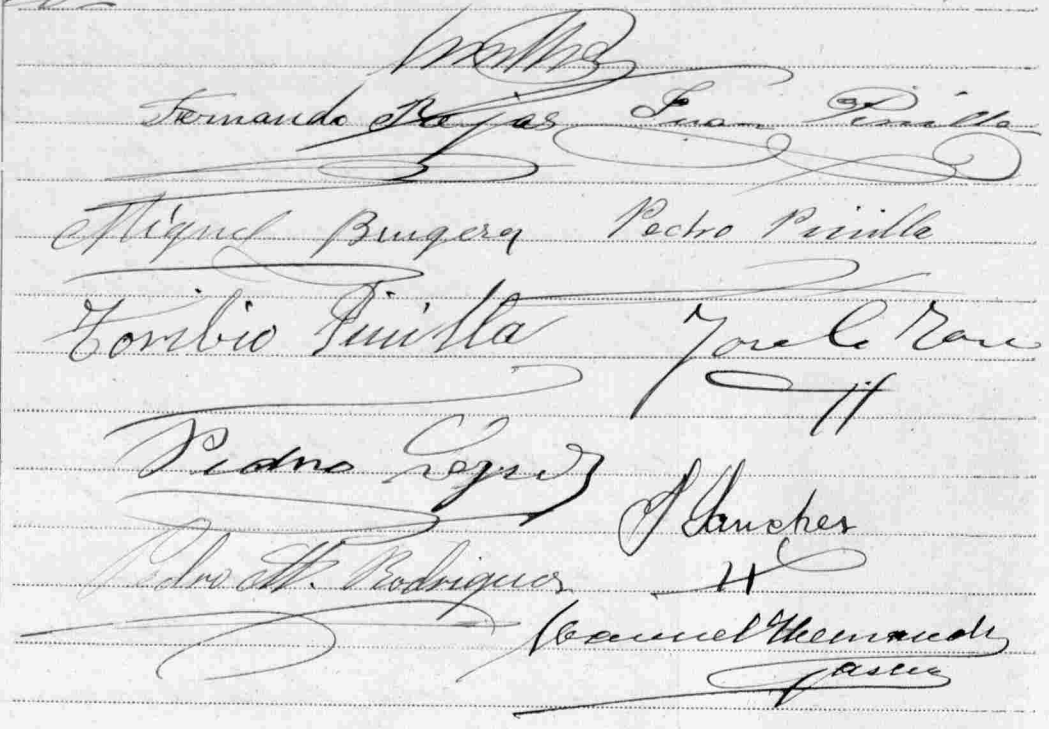 Fernando Rojas Juan Pinilla
Miguel Brugera Pedro Pinilla
Toribio Pinilla Jose
Pedro
J Sanchez
Pedro M. Rodriguez
Manuel Hernandez